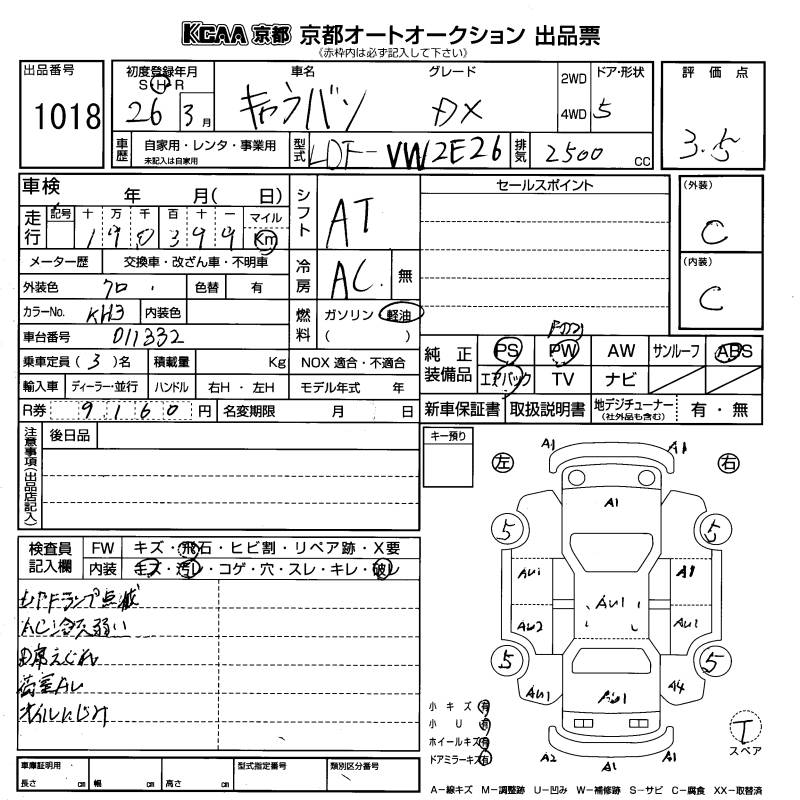 KCAA 京都 京都オートオークション 出品票
《赤枠内は必ず記入して下さい》
出品番号
1018
初度登録年月
S H R
26 3 月
車名
キャラバン
グレード
DX
2WD
4WD
ドア・形状
5
評価点
3.5
車歴
自家用・レンタ・事業用
未記入は自家用
型式
LDF-VW2E26
排気
2500 cc
車検 年 月( 日)
走行
記号 十 万 千 百 十 一 マイル
1 9 0 3 9 9 Km
シフト
AT
メーター歴 交換車・改ざん車・不明車
外装色 クロ 色替 有
冷房
AC 無
カラーNo. KH3 内装色
燃料
ガソリン 軽油
( )
車台番号 011332
乗車定員 (3)名 積載量 Kg NOX 適合・不適合
輸入車 ディーラー・並行 ハンドル 右H・左H モデル年式 年
R券 9160 円 名変期限 月 日
セールスポイント
(外装)
C
(内装)
C
純正装備品
PS PW AW サンルーフ ABS
エアバック TV ナビ
新車保証書 取扱説明書 地デジチューナー (社外品も含む) 有・無
注意事項(出品店記入)
後日品
キー預り
左 右
A1 A1
A1
5 5
AU1 A1
AU1
AU2 AU1
5 5
AU1 A4
AU1
A2 A1
検査員記入欄
FW キズ・飛石・ヒビ割・リペア跡・X要
内装 キズ・汚レ・コゲ・穴・スレ・キレ・破レ
DPFランプ点滅
AC冷え弱い
荷室AU
オイルにじみ
小キズ 有
小U 有
ホイールキズ 有
ドアミラーキズ 有
T
スペア
車庫証明用
長さ cm 幅 cm 高さ cm
型式指定番号 類別区分番号
A－線キズ M－調整跡 U－凹み W－補修跡 S－サビ C－腐食 XX－取替済